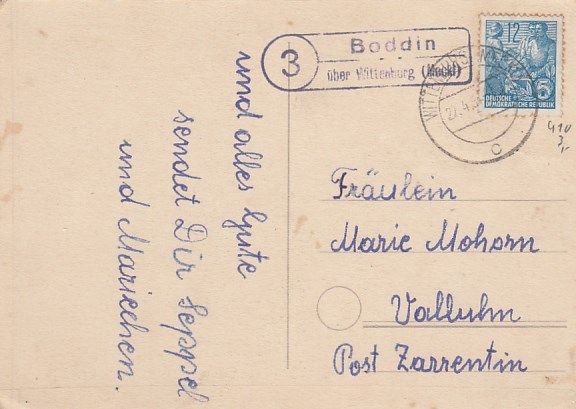 und alles Gute
sendet Dir Seppel
und Mariechen.
3
Boddin
über Wittenburg (Meckl)
12
DEUTSCHE
DEMOKRATISCHE REPUBLIK
c
410
3,-
Fräulein
Marie Mohorn
Valluhn
Post Zarrentin